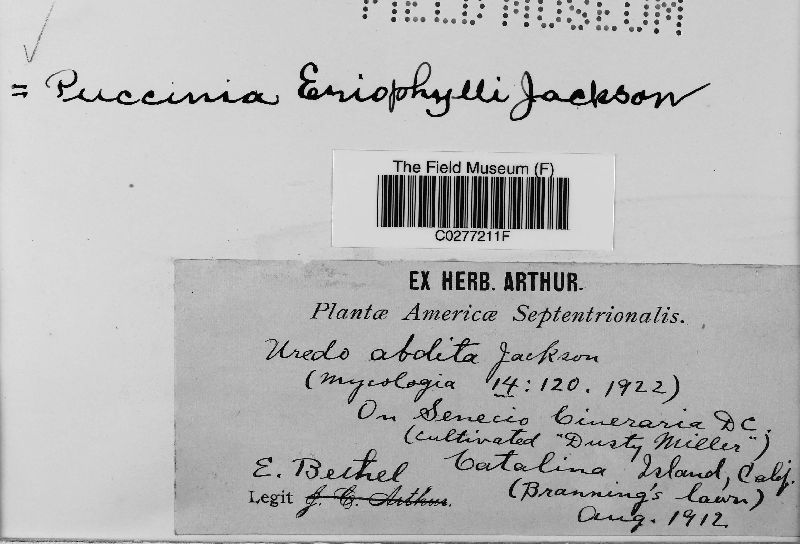 FIELD MUSEUM
= Puccinia Eriophylli Jackson
The Field Museum (F)
C0277211F
EX HERB. ARTHUR.
Plantæ Americæ Septentrionalis.
Uredo abdita Jackson
(Mycologia 14:120. 1922)
On Senecio Cineraria DC.
(cultivated "Dusty Miller")
E. Bethel Catalina Island, Calif.
Legit J. C. Arthur. (Branning's lawn)
Aug. 1912